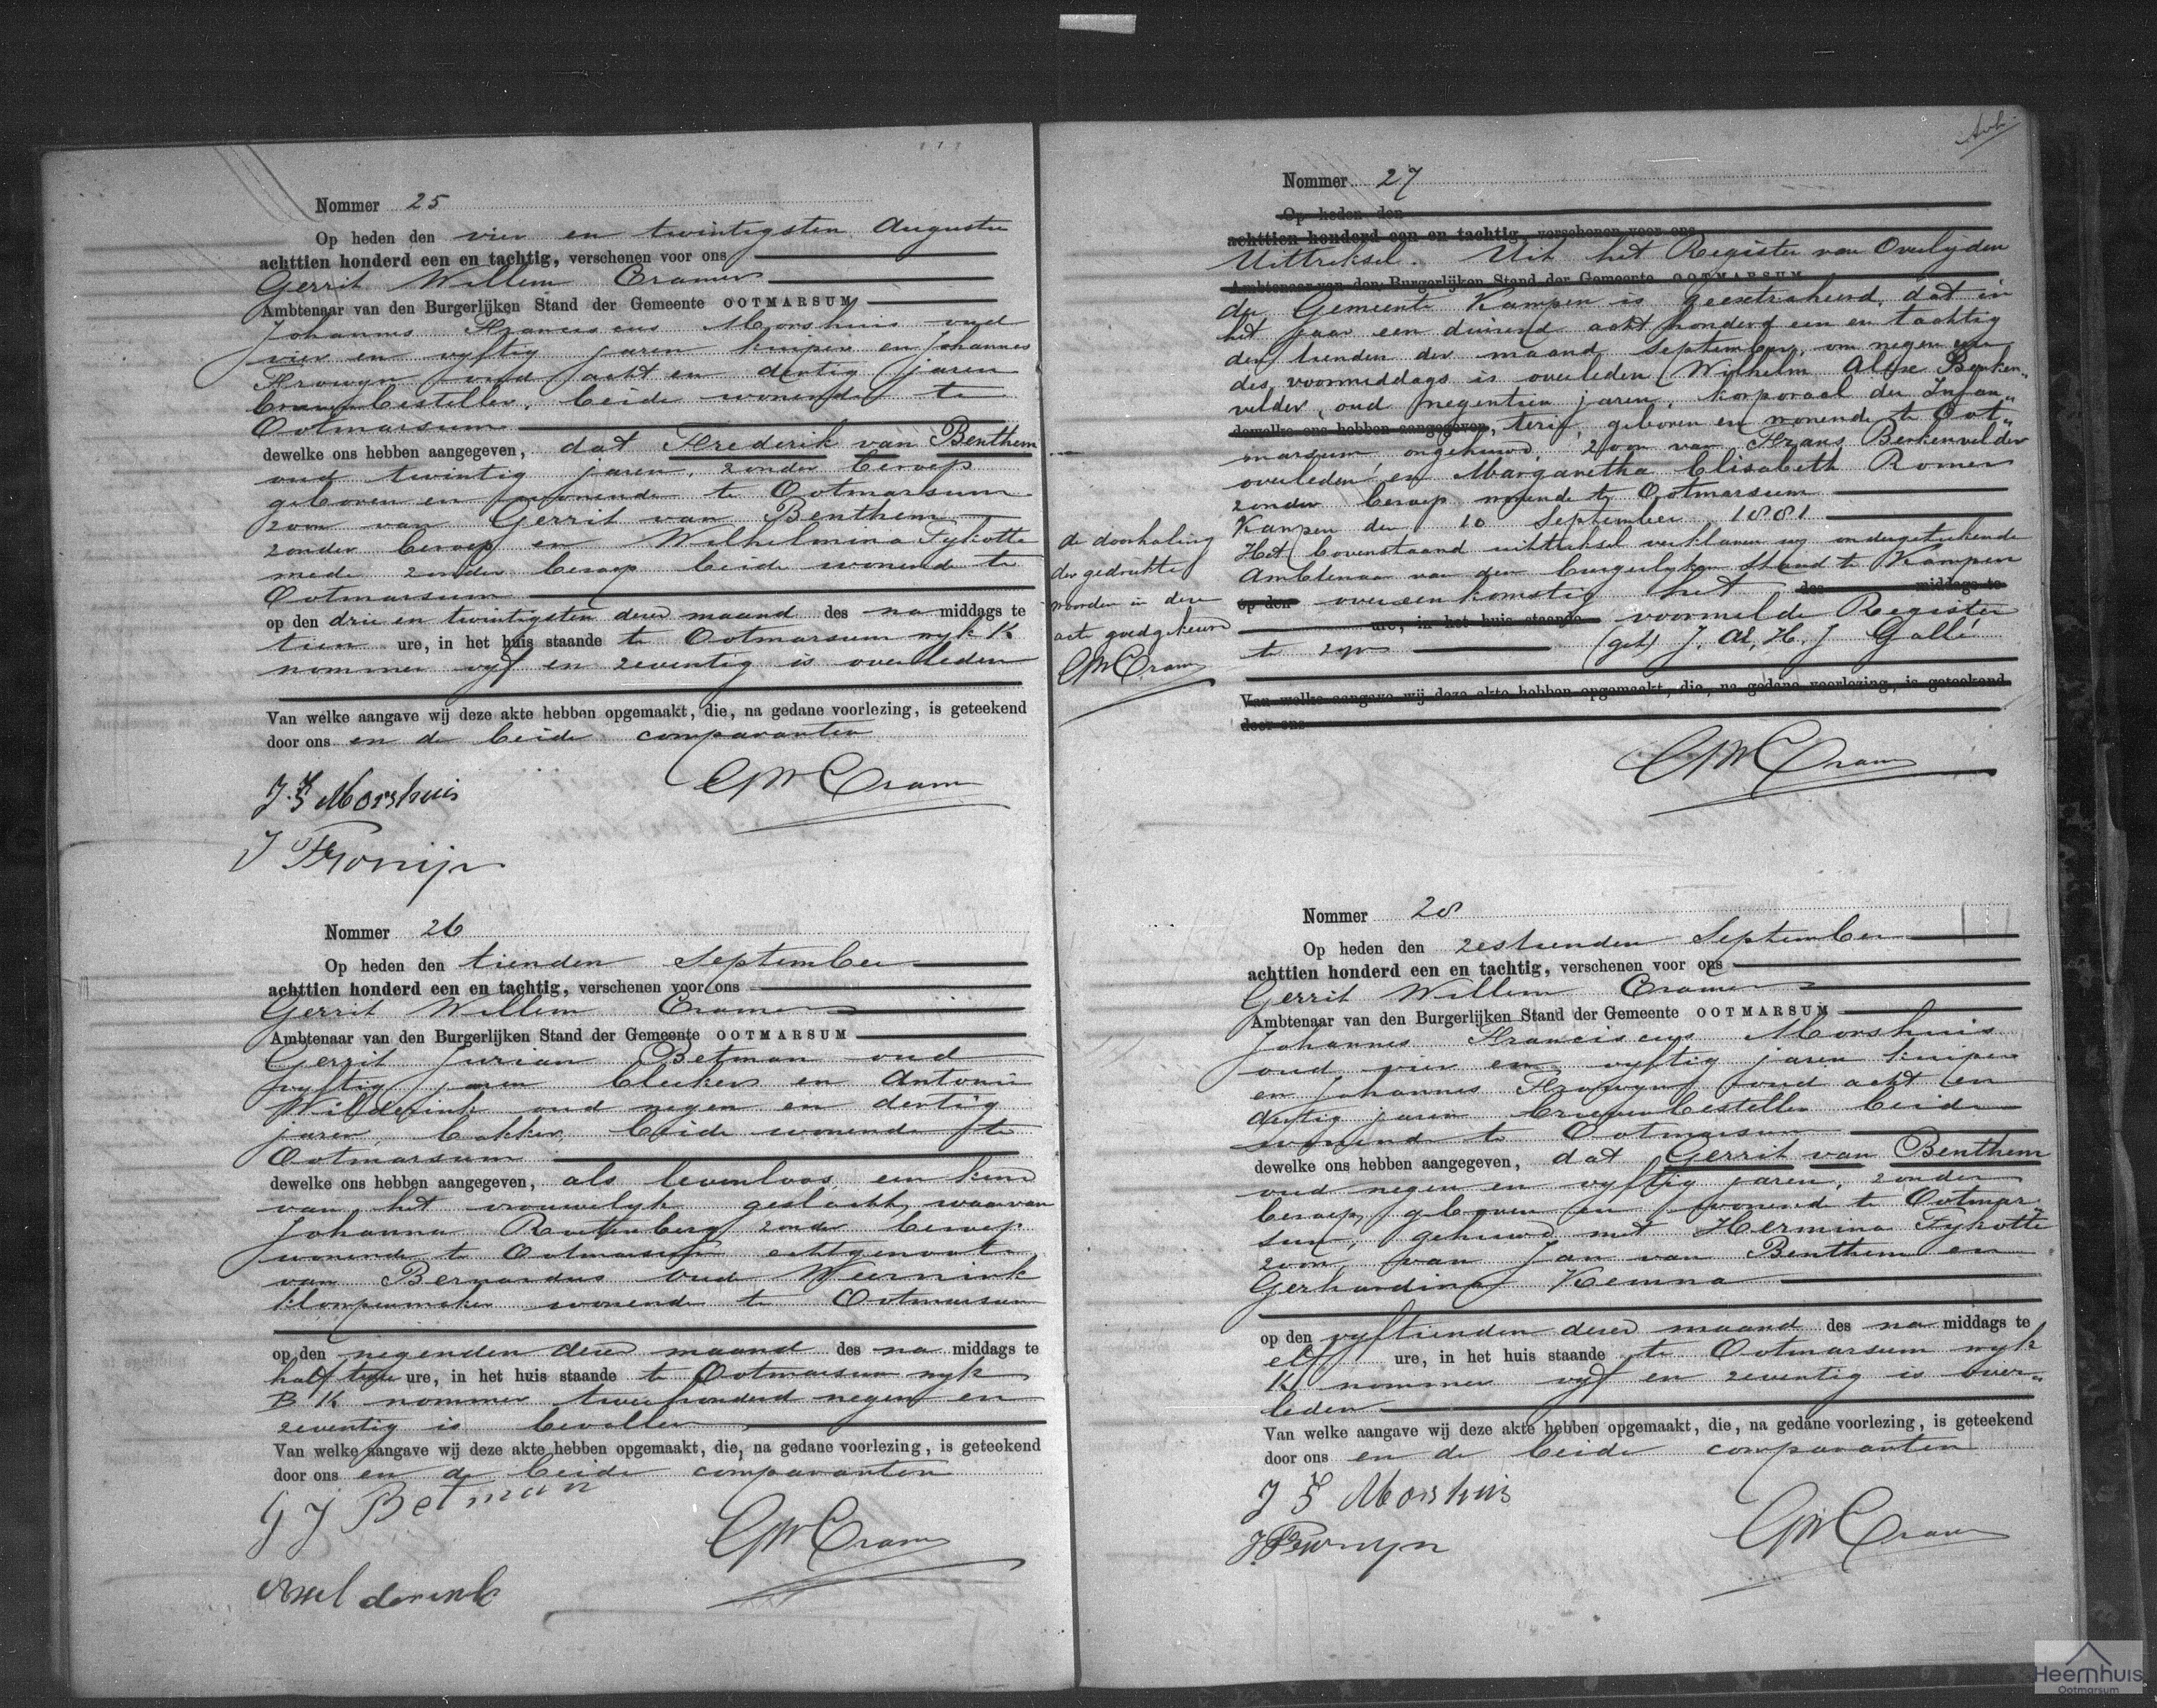 Nommer 25
Op heden den vier en twintigsten Augustus
achttien honderd een en tachtig, verschenen voor ons
Gerrit Willem Cramer
Ambtenaar van den Burgerlijken Stand der Gemeente OOTMARSUM
Johannes Franciscus Morshuis oud
vier en vyftig jaren kuiper en Johannes
Frowyn oud acht en dertig jaren
brievenbesteller, beide wonende te
Ootmarsum
dewelke ons hebben aangegeven, dat Frederik van Benthem
oud twintig jaren, zonder beroep
geboren en wonende te Ootmarsum
zoon van Gerrit van Benthem
zonder beroep en Wilhelmina Fykotte
mede zonder beroep beide wonende te
Ootmarsum
op den drie en twintigsten dezer maand des na middags te
tien ure, in het huis staande te Ootmarsum wyk K
nommer vyf en zeventig is overleden
Van welke aangave wij deze akte hebben opgemaakt, die, na gedane voorlezing, is geteekend
door ons en de beide comparanten
J. F Morshuis
GWCramer
J Frowijn
Nommer 26
Op heden den tienden September
achttien honderd een en tachtig, verschenen voor ons
Gerrit Willem Cramer
Ambtenaar van den Burgerlijken Stand der Gemeente OOTMARSUM
Gerrit Jurian Betman oud
vyftig jaren bleeker en Antonie
Wilderink oud negen en dertig
jaren, bakker, beide wonende te
Ootmarsum
dewelke ons hebben aangegeven, als levenloos een kind
van het vrouwelyk geslacht, waarvan
Johanna Rottenberg zonder beroep
wonende te Ootmarsum echtgenoote
van Bernardus oud Weernink
klompenmaker wonende te Ootmarsum
op den negenden dezer maand des na middags te
half tien ure, in het huis staande te Ootmarsum wyk
B K nommer twee honderd negen en
zeventig is bevallen
Van welke aangave wij deze akte hebben opgemaakt, die, na gedane voorlezing, is geteekend
door ons en de beide comparanten
G J Betman
GWCramer
AWilderink
Nommer 27
Op heden den
achttien honderd een en tachtig, verschenen voor ons
Uittreksel. Uit het Register van Overlyden
Ambtenaar van den Burgerlijken Stand der Gemeente OOTMARSUM
der Gemeente Kampen is geextraheerd, dat in
het jaar een duizend acht honderd een en tachtig
den tienden der maand September, om negen ure
des voormiddags is overleden Wilhelm Alose Berken„
velder, oud negentien jaren, korporaal der Infan„
dewelke ons hebben aangegeven, terie, geboren en wonende te Oot„
marsum, ongehuwd, zoon van Frans Berkenvelder
overleden en Margaretha Elisabeth Romer
zonder beroep wonende te Ootmarsum
Kampen den 10 September 1881
Het bovenstaand uittreksel verklaren wy ondergeteekende
Ambtenaar van den burgerlyken Stand te Kampen
op den overeenkomstig het des middags te
ure, in het huis staande voormelde Register
te zyn (get) J. Al. H. J Gallé
Van welke aangave wij deze akte hebben opgemaakt, die, na gedane voorlezing, is geteekend
door ons
GWCramer
de doorhaling
der gedrukte
woorden in deze
acte goedgekeurd
GWCramer
Nommer 28
Op heden den zestienden September
achttien honderd een en tachtig, verschenen voor ons
Gerrit Willem Cramer
Ambtenaar van den Burgerlijken Stand der Gemeente OOTMARSUM
Johannes Franciscus Morshuis
oud vier en vyftig jaren kuiper
en Johannes Frowyn oud acht en
dertig jaren brievenbesteller beide
wonende te Ootmarsum
dewelke ons hebben aangegeven, dat Gerrit van Benthem
oud negen en vyftig jaren, zonder
beroep, geboren en wonende te Ootmar
sum, gehuwd met Hermina Fykotte
zoon van Jan van Benthem en
Gerhardina Kemna
op den vyftienden dezer maand des na middags te
elf ure, in het huis staande te Ootmarsum wyk
K nommer vyf en zeventig is over„
leden
Van welke aangave wij deze akte hebben opgemaakt, die, na gedane voorlezing, is geteekend
door ons en de beide comparanten
J F Morshuis
GWCramer
J Frowyn
Heemhuis
Ootmarsum